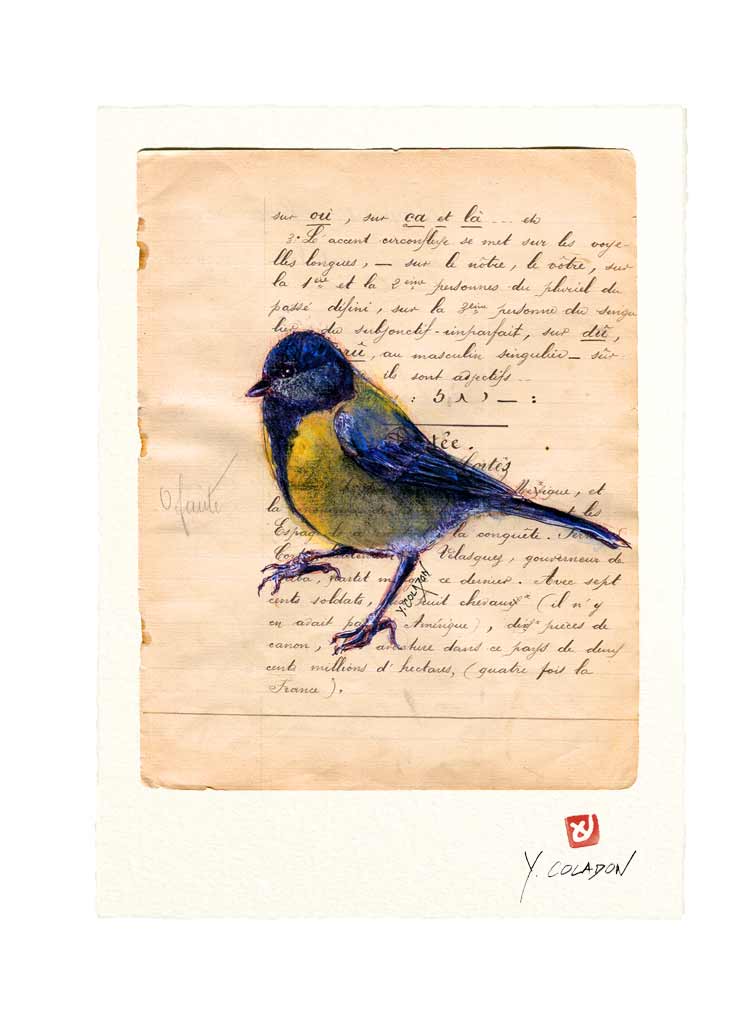 sur où, sur ça et là .... etc
3º L'accent circonflexe se met sur les voye-
lles longues, — sur le nôtre, le vôtre, sur
la 1ère et la 2ème personnes du pluriel du
passé défini, sur la 3ème personne du singu
lier du subjonctif-imparfait, sur dû,
, au masculin singulier — sûr
ils sont adjectifs ..
tée.
Cortès
Mexique, et
la les
Espag la conquête.
Cort Velasquez, gouverneur de
ba, partit m ce dernier. Avec sept
cents soldats, huit chevaux (il n'y
en avait pas Amérique), dix pièces de
canon, dans ce pays de deux
cents millions d'hectares, (quatre fois la
France).
0 faute
Y. COLADON
Y. COLADON